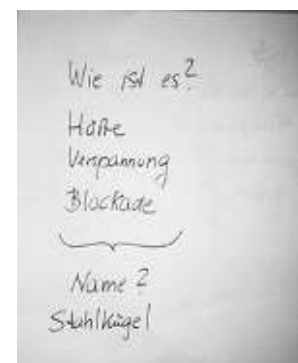 Wie ist es?
Härte
Verspannung
Blockade
Name?
Stahlkugel